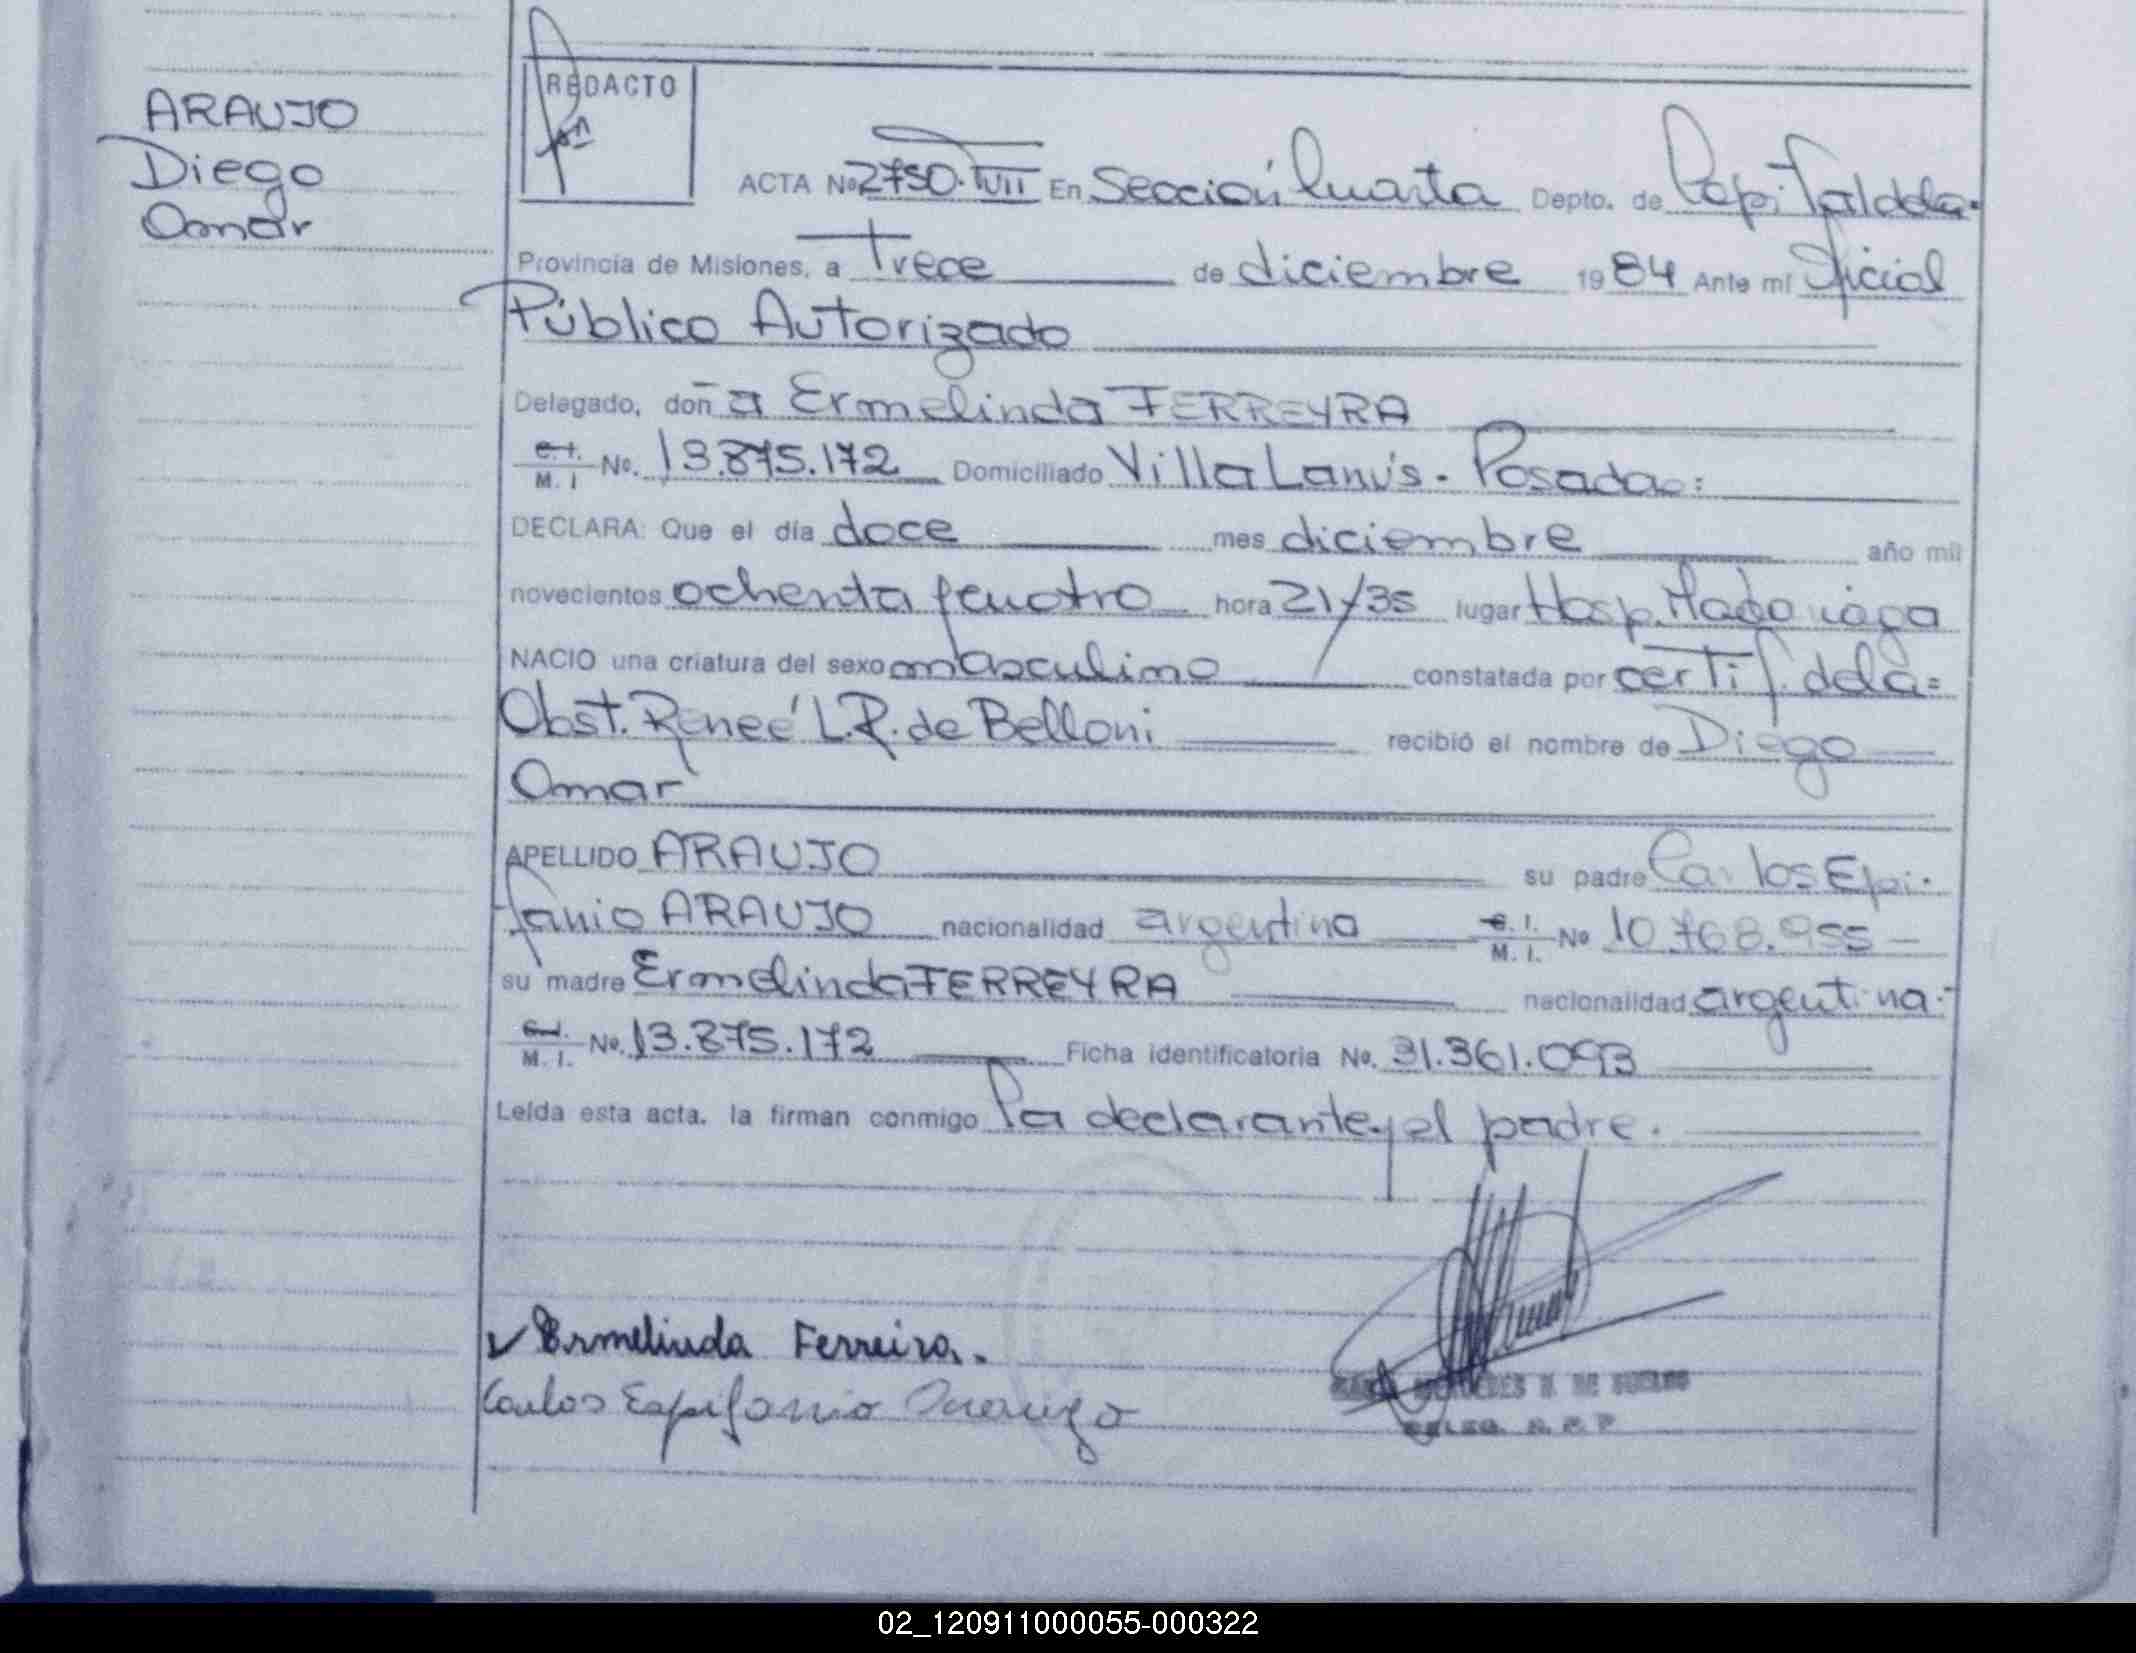 ARAUJO
Diego
Omar
REDACTO
ACTA Nº 2750. TVII En Sección Cuarta Depto. de Capital de la
Provincia de Misiones, a Trece de diciembre 1984 Ante mí Oficial
Público Autorizado
Delegado, doñ a Ermelinda FERREYRA
C. I.
M. I No. 13.875.172 Domiciliado Villa Lanús - Posadas:
DECLARA: Que el día doce mes diciembre año mil
novecientos ochenta y cuatro hora 21/35 lugar Hosp. Madariaga
NACIO una criatura del sexo masculino constatada por certif. de la =
Obst. Reneé L.R. de Belloni recibió el nombre de Diego
Omar
APELLIDO ARAUJO su padre Carlos Epi-
fanio ARAUJO nacionalidad argentina C. I.
M. I. Nº 10.768.955 —
su madre Ermelinda FERREYRA nacionalidad argentina.-
C. I.
M. I. No. 13.875.172 Ficha identificatoria No. 31.361.093
Leída esta acta, la firman conmigo la declarante y el padre.
Ermelinda Ferreira.
Carlos Espifanio Araujo
02_120911000055-000322